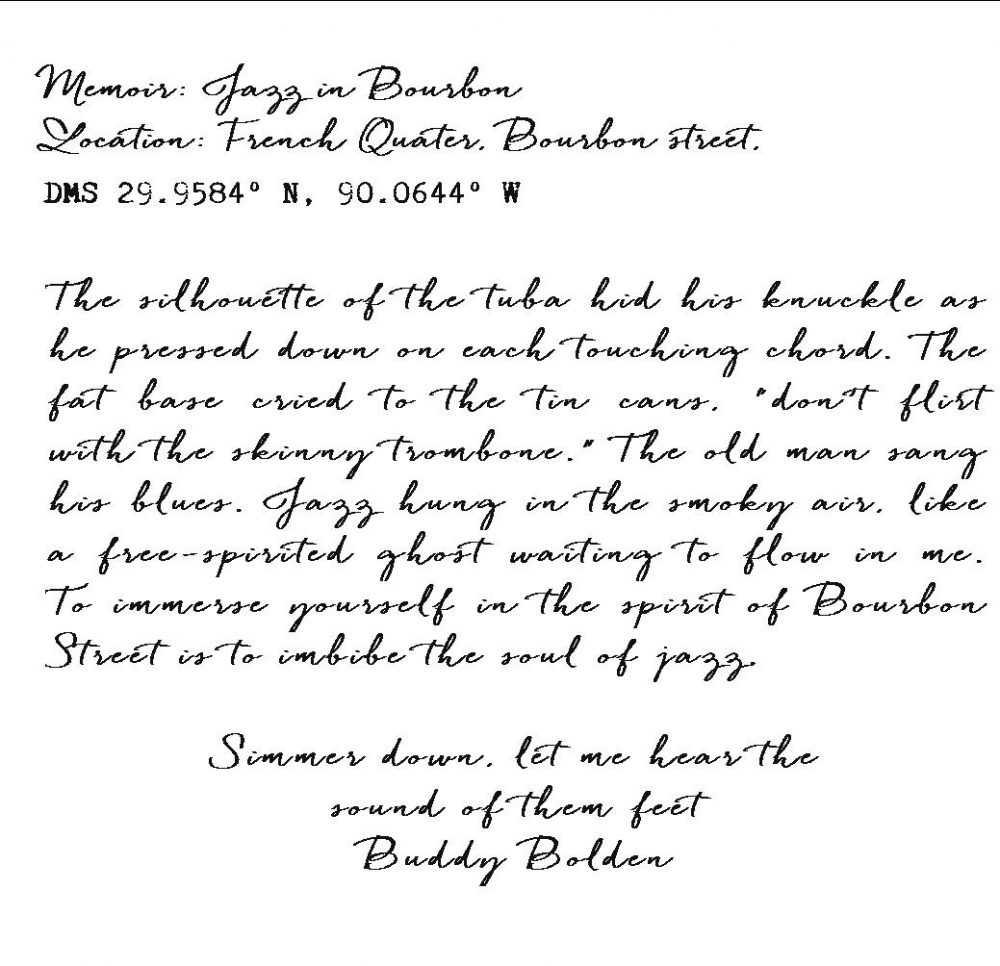 Memoir: Jazz in Bourbon
Location: French Quater, Bourbon street,
DMS 29.9584° N, 90.0644° W
The silhouette of the tuba hid his knuckle as
he pressed down on each touching chord. The
fat base cried to the tin cans, "don't flirt
with the skinny trombone." The old man sang
his blues. Jazz hung in the smoky air, like
a free-spirited ghost waiting to flow in me.
To immerse yourself in the spirit of Bourbon
Street is to imbibe the soul of jazz.
Simmer down, let me hear the
sound of them feet
Buddy Bolden